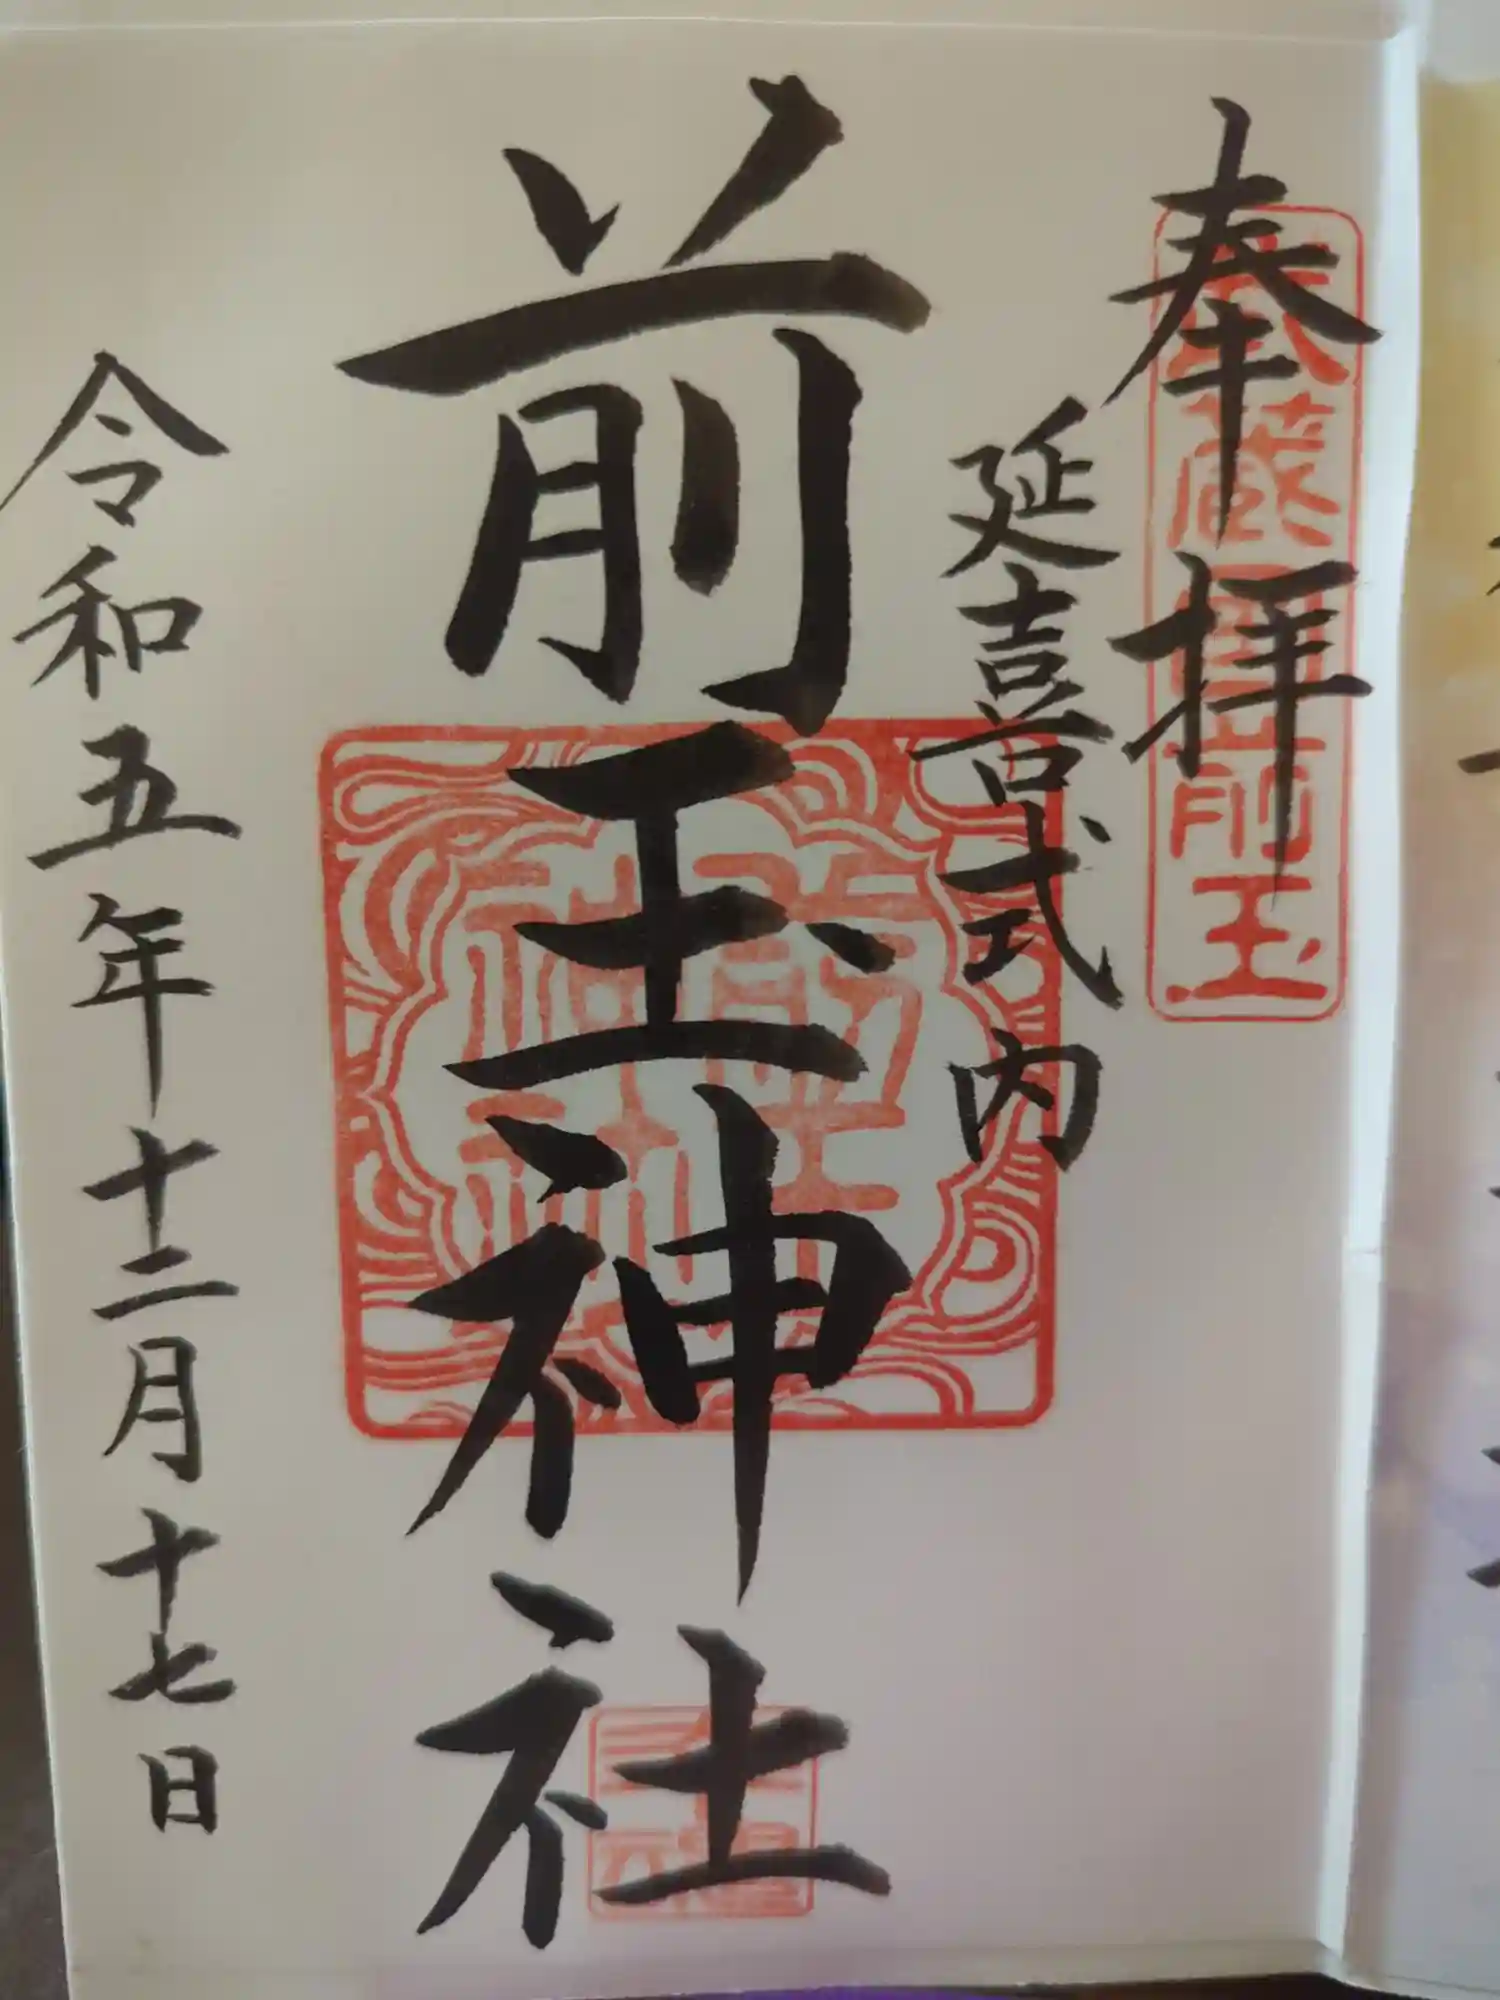 奉拝
武蔵国前玉
延喜式内
前玉神社
前玉神社
令和五年十二月十七日